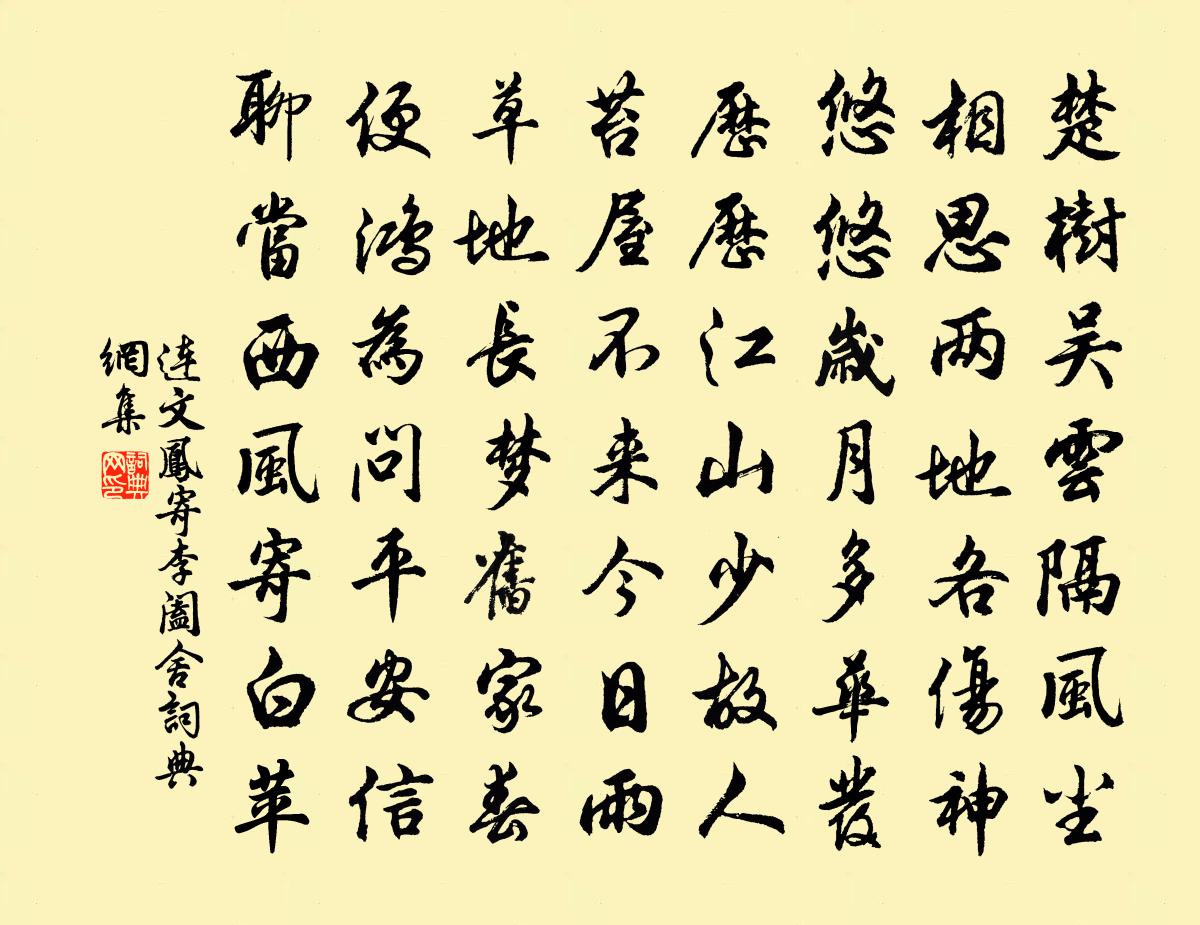 楚樹吴雲隔風尘
相思两地各傷神
悠悠歲月多華發
歷歷江山少故人
苔屋不来今日雨
草地長梦舊家春
便鸿為问平安信
聊當西風寄白苹
連文鳳寄李闔舍詞典
網集
詞典网印